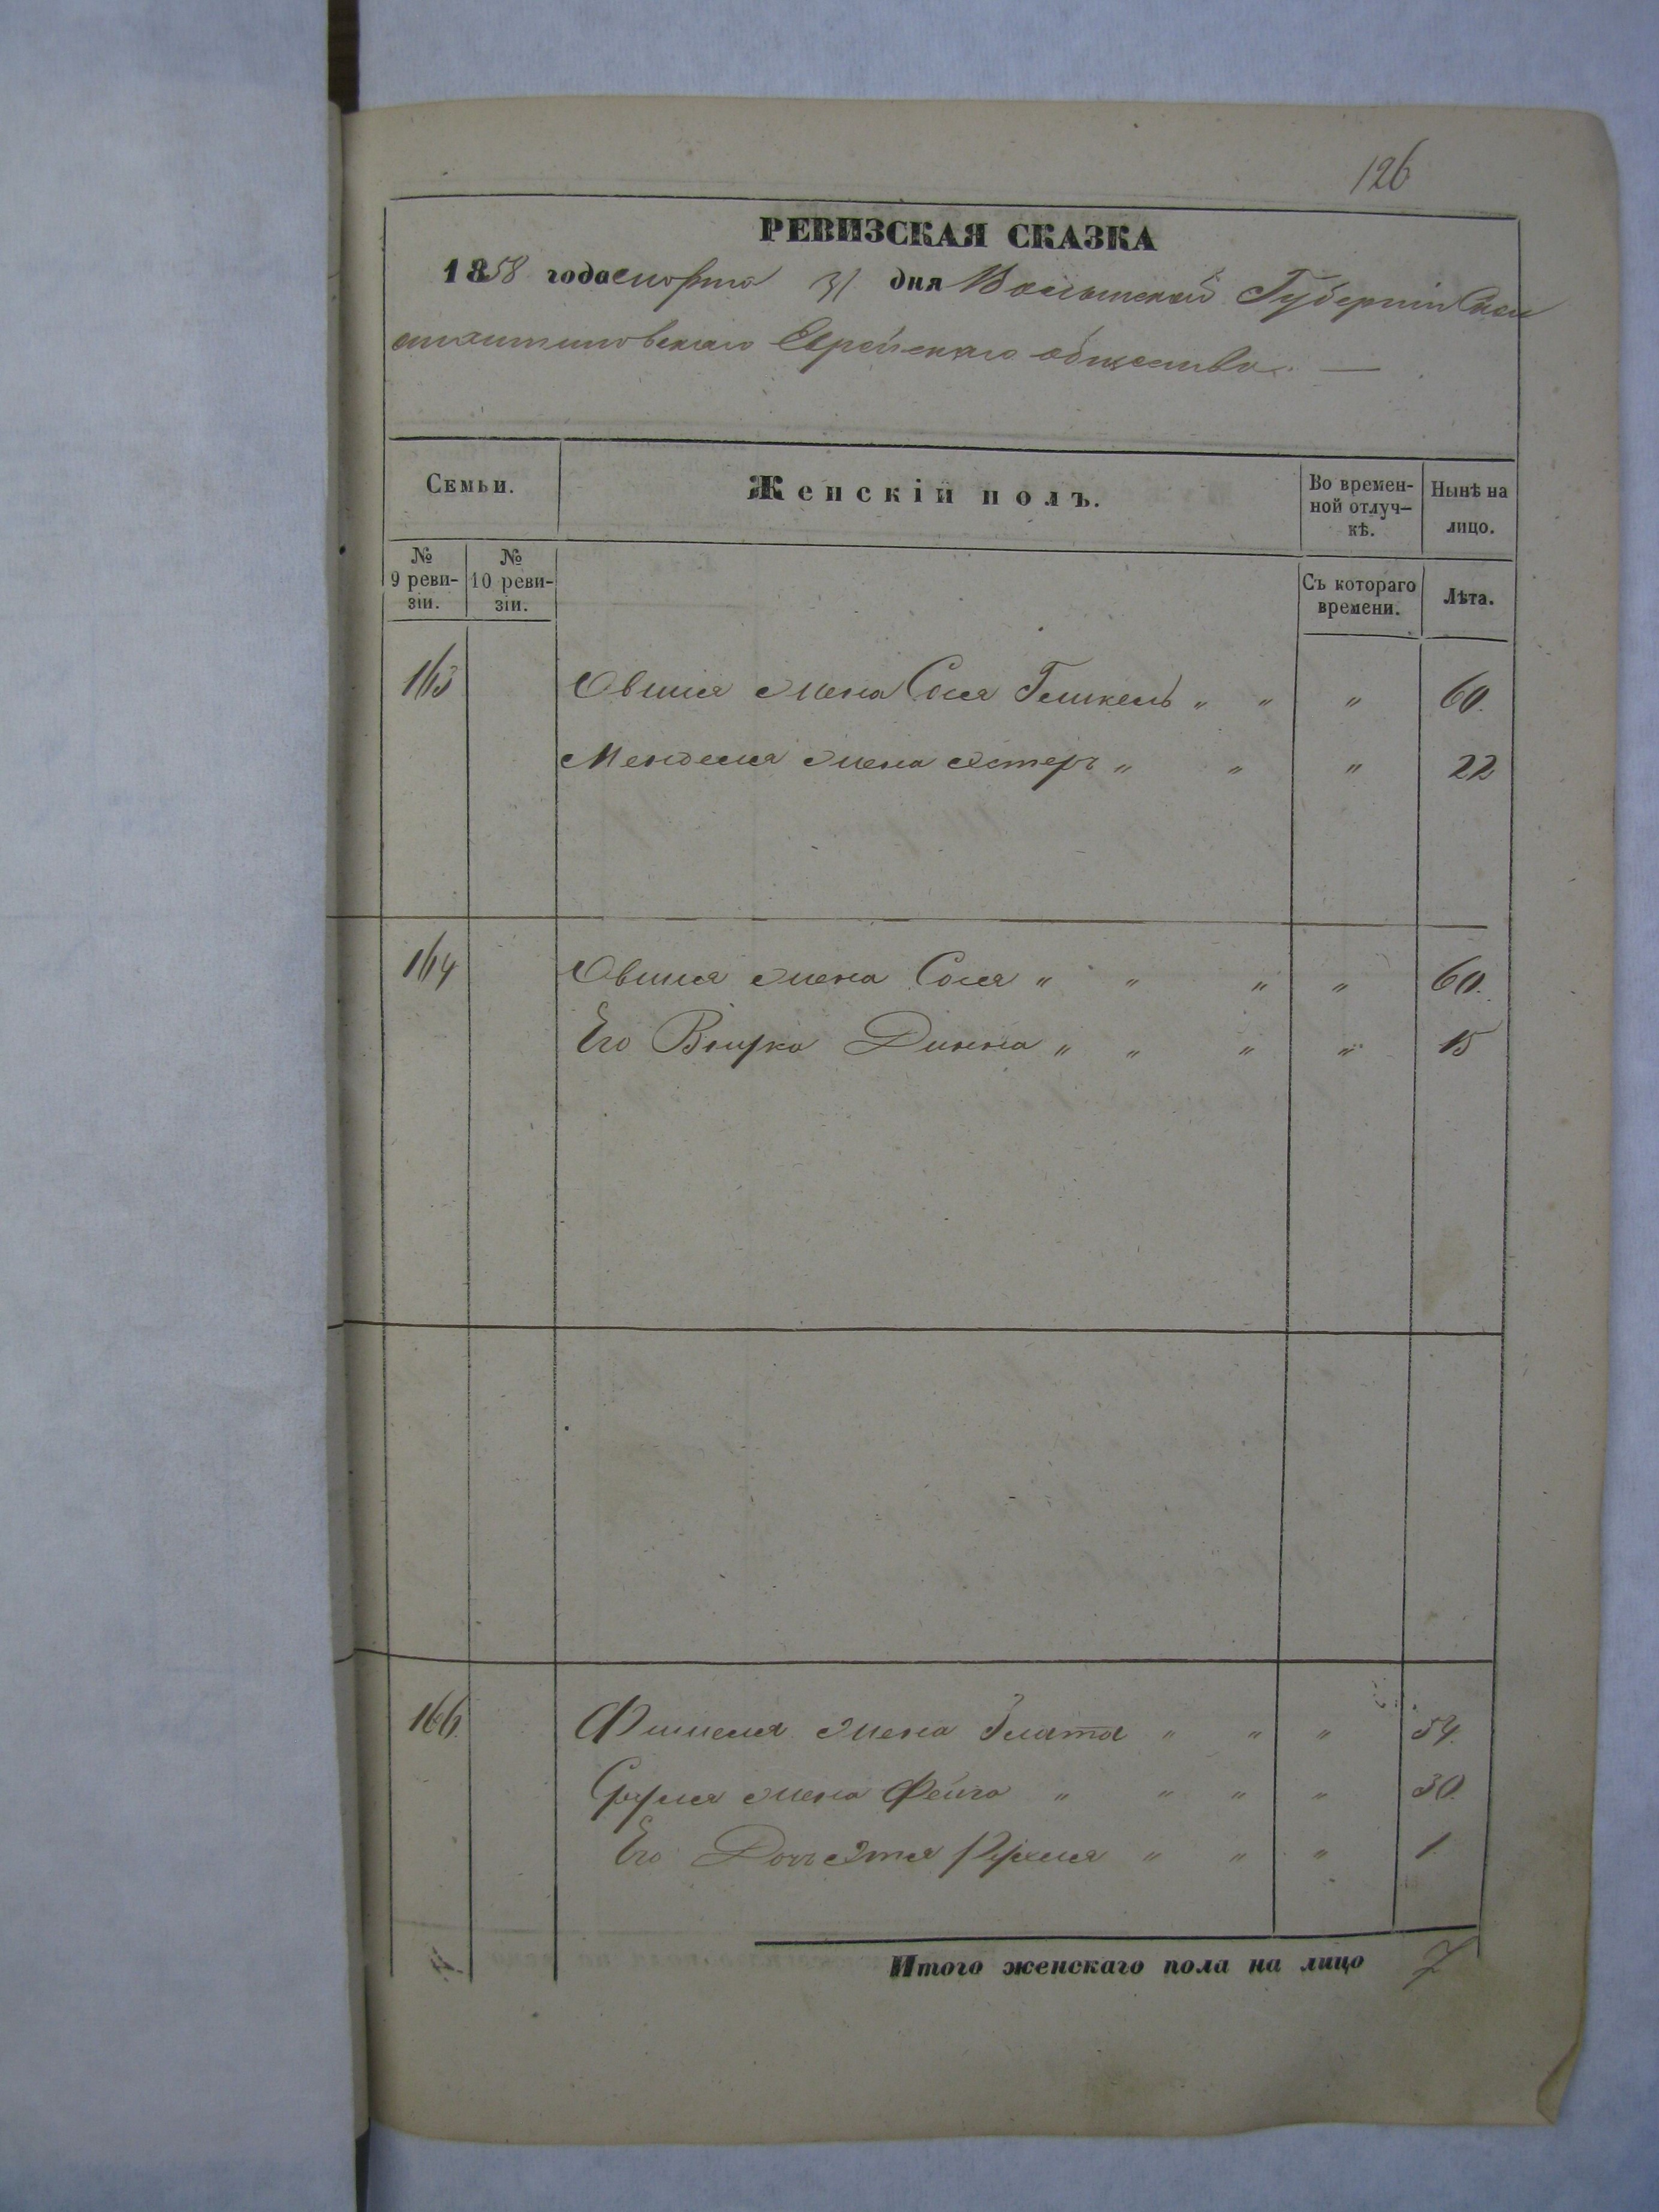 126
РЕВИЗСКАЯ СКАЗКА
1858 года марта 31 дня Волынской Губерніи Кон
стантиновскаго Еврейскаго общества. —
Семьи.
Женскій полъ.
Во времен-
ной отлуч-
кѣ.
Нынѣ на
лицо.
№
9 реви-
зіи.
№
10 реви-
зіи.
Съ котораго
времени.
Лѣта.
163 Овшія жена Сося " " " 60.
Менделя жена Эстеръ " " " 22
164 Овшія жена Сося " " " " 60.
Его Внучка Динна " " " " 15
166. Фишеля жена Злата " " " 54.
Срруля жена Фейга " " " " 30.
Его Дочь Этя Рухля " " " 1
Итого женскаго пола на лицо 7